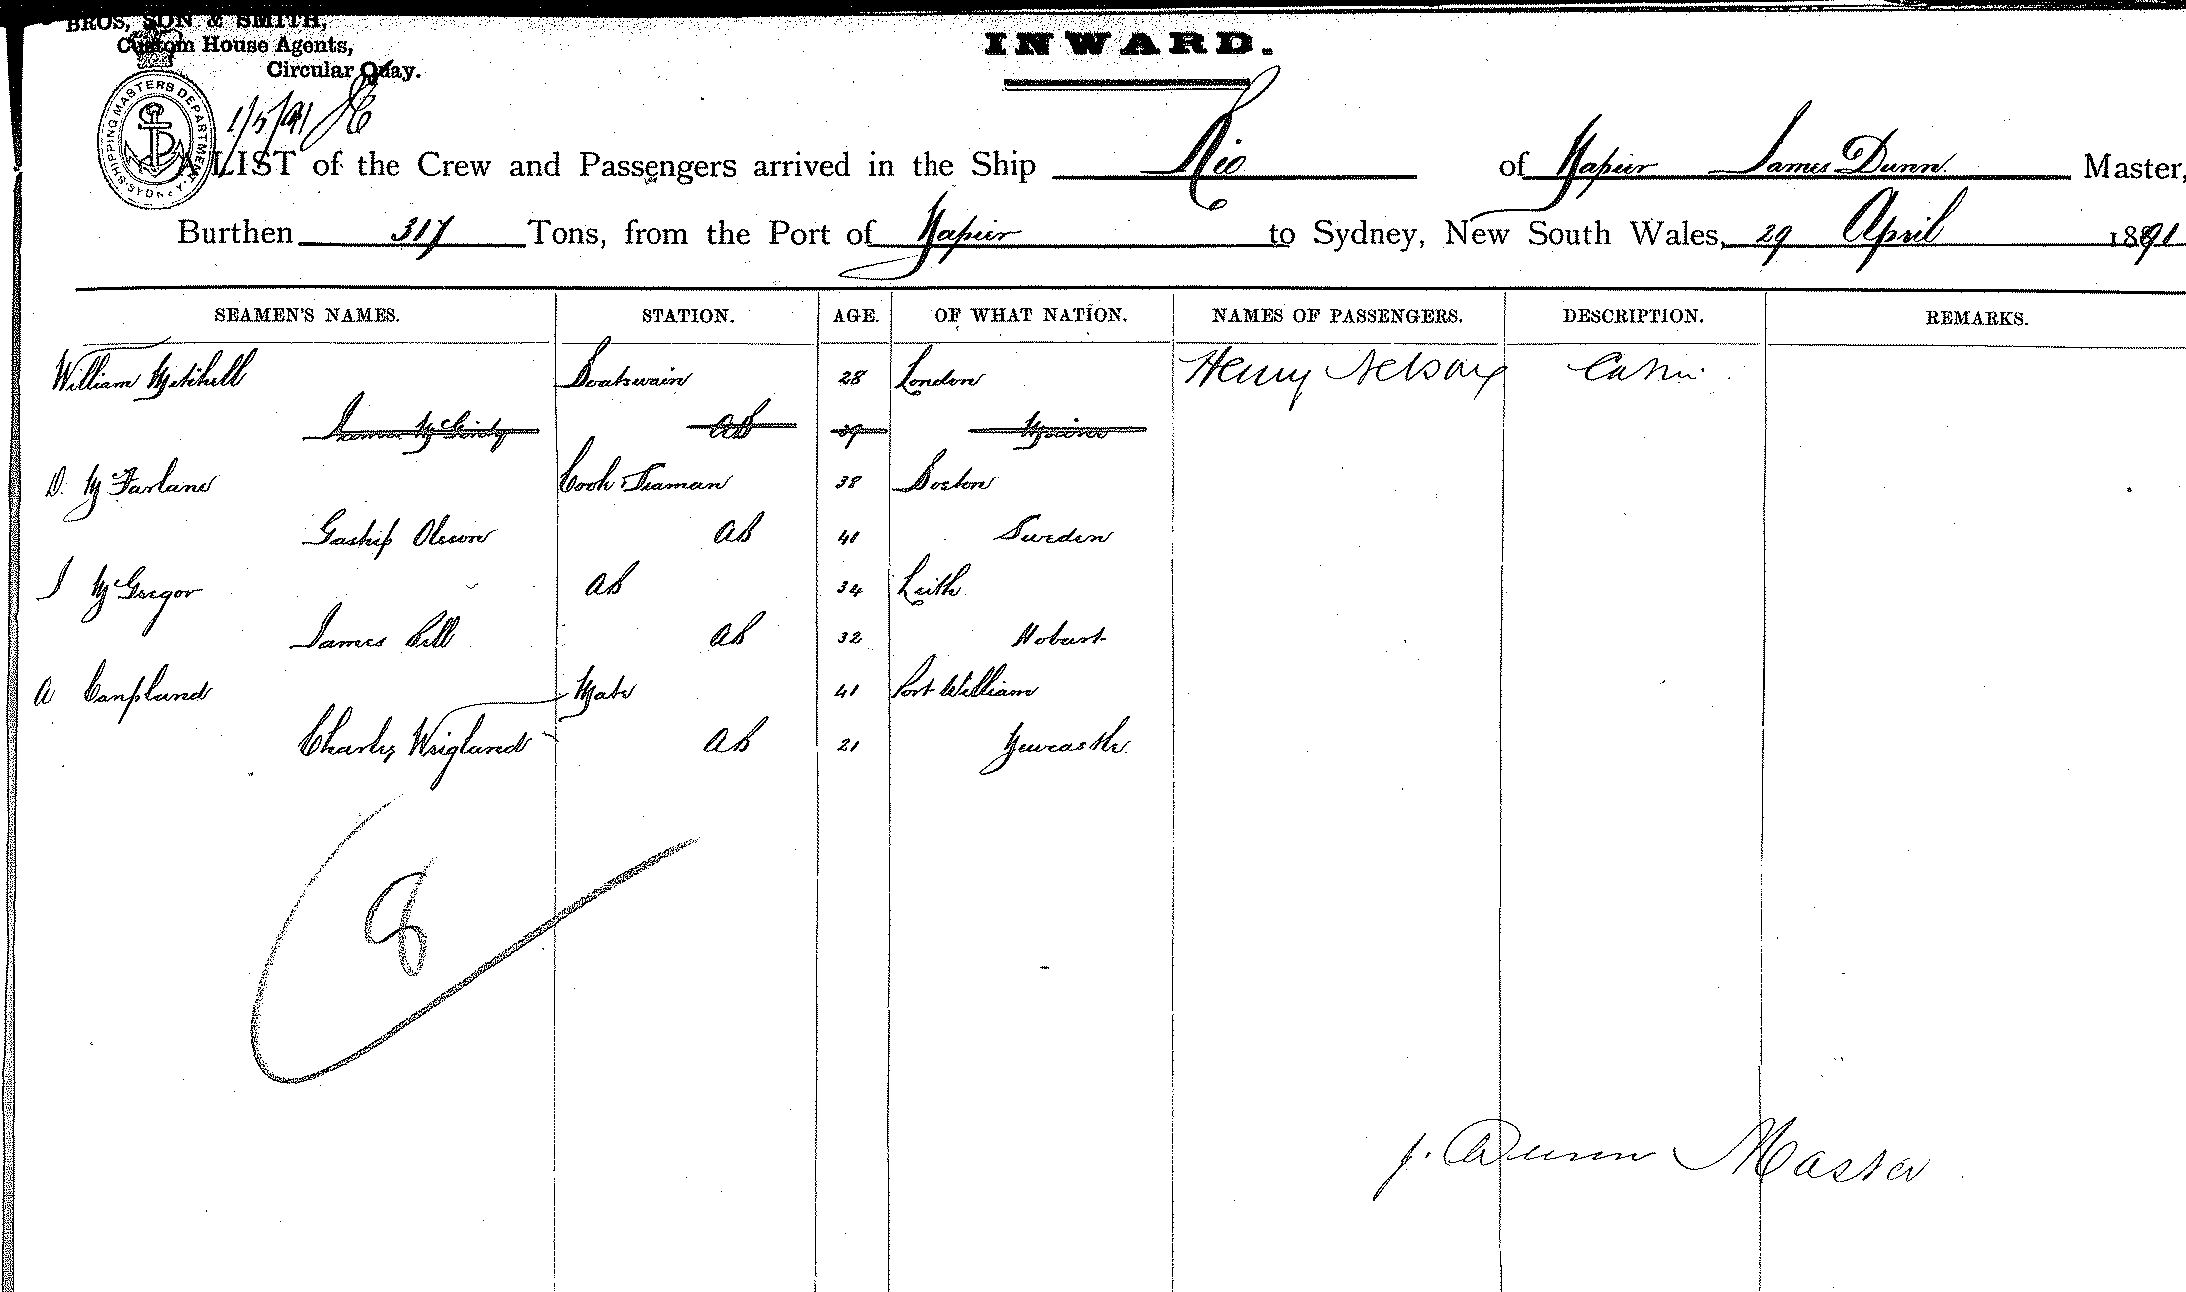 BROS, SON & SMITH,
Custom House Agents,
Circular Quay.
INWARD.
SHIPPING MASTERS DEPARTMENT SYDNEY
1/5/91
A LIST of the Crew and Passengers arrived in the Ship Rio of Napier James Dunn Master,
Burthen 317 Tons, from the Port of Napier to Sydney, New South Wales, 29 April 1891
SEAMEN'S NAMES. STATION. AGE. OF WHAT NATION. NAMES OF PASSENGERS. DESCRIPTION. REMARKS.
William Mitchell Boatswain 28 London Henry Nelson Cabin
AB 39
D. McFarlane Cook & Seaman 38 Boston
Olsson AB 40 Sweden
J McGregor AB 34 Leith
James Bell AB 32 Hobart
A Campland Mate 41 Port William
Charles Wrigland AB 21 Newcastle
8
J. Dunn Master